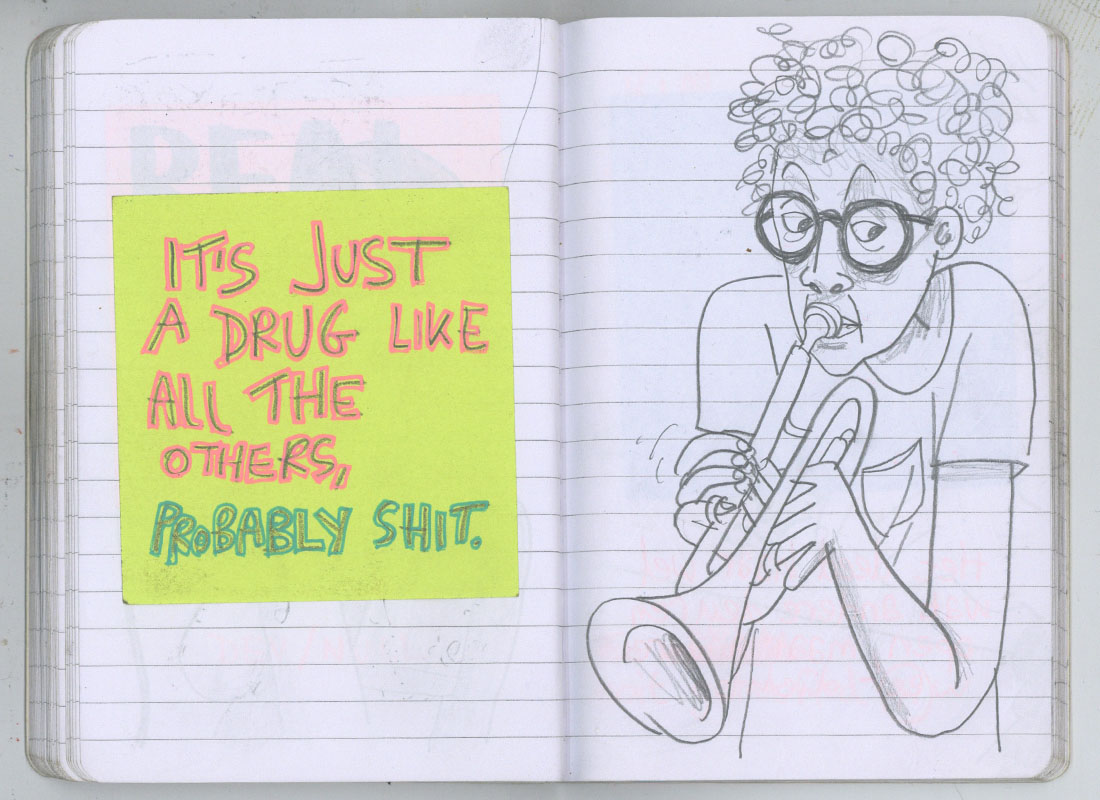 IT'S JUST
A DRUG LIKE
ALL THE
OTHERS,
PROBABLY SHIT.